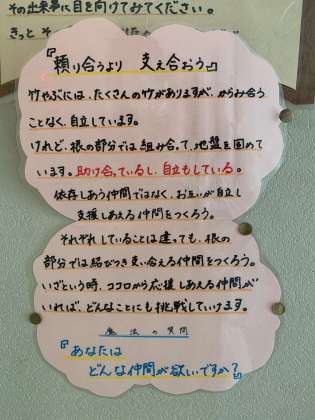 その出来事に目を向けてみてください。
きっと そ
『頼り合うより 支え合おう。』
竹やぶには、たくさんの竹がありますが、からみ合う
ことなく、自立しています。
けれど、根の部分では組み合って、地盤を固めて
います。助け合っているし、自立もしている。
依存しあう仲間ではなく、お互いが自立し
支援しあえる仲間をつくろう。
それぞれしていることは違っても、根の
部分では結びつき支い合える仲間をつくろう。
いざという時、ココロから応援しあえる仲間が
いれば、どんなことにも挑戦していけます。
魔法の質問
『あなたは
どんな仲間が欲しいですか?』